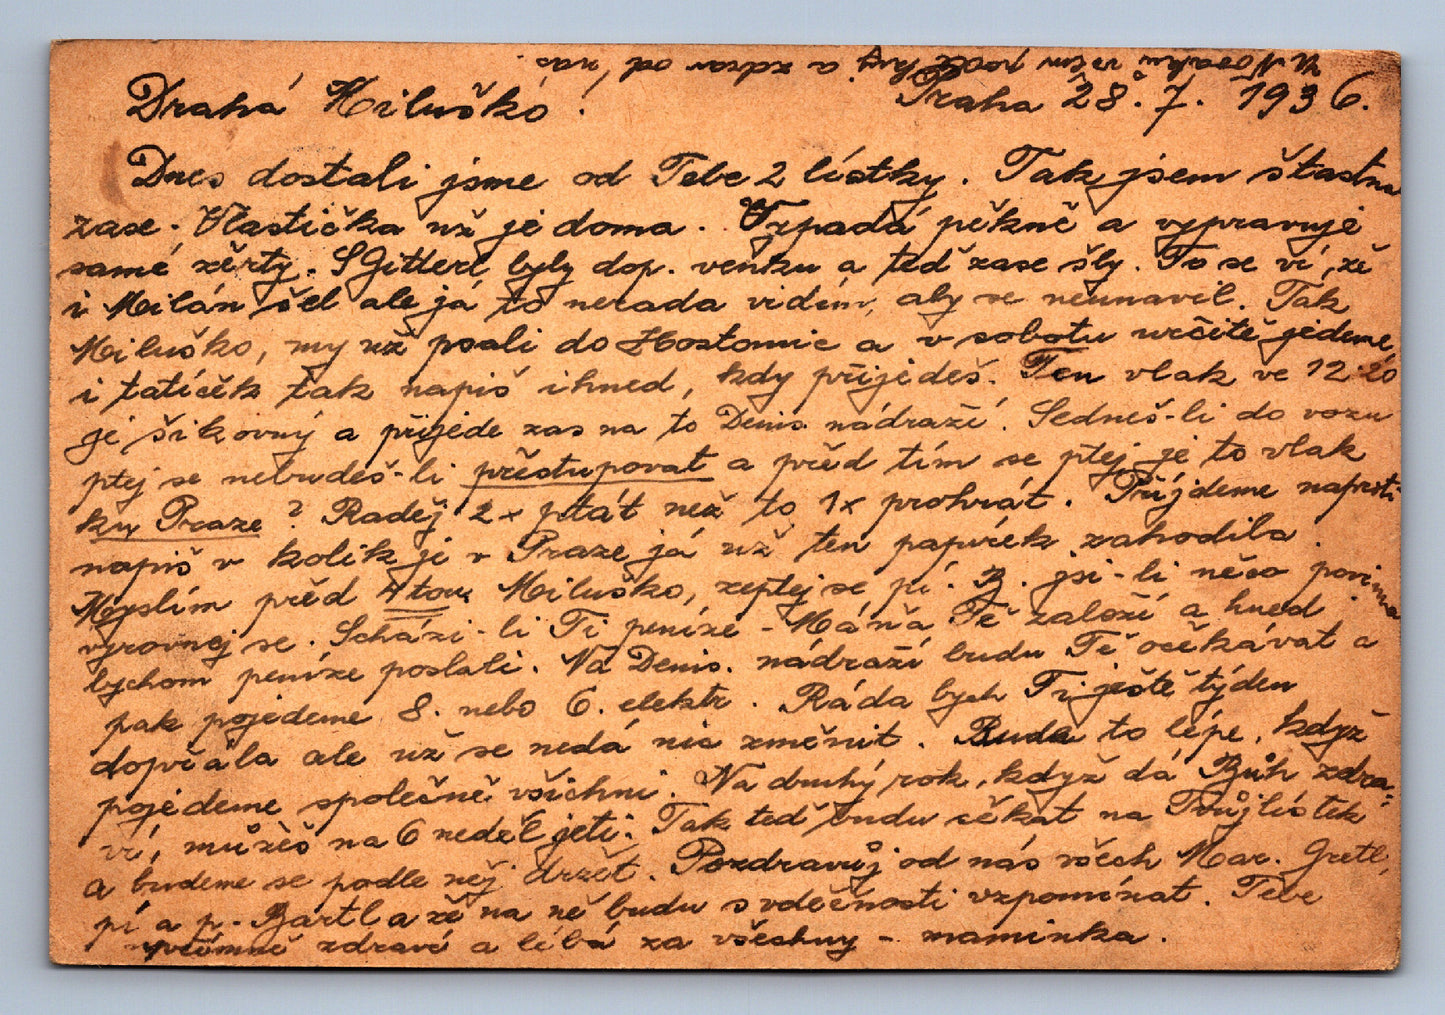 Praha 28. 7. 1936.
Drahá Miluško!
Dnes dostali jsme od Tebe 2 lístky. Tak jsem šťastna
zase. Vlastička už je doma. Vypadá pěkně a vypravuje
samé žerty. S Gitterl byly dop. venku a teď zase šly. To se ví, že
i Milán šel ale já to nerada vidím, aby se neunavil. Tak
Miluško, my už psali do Hostomic a v sobotu určitě jedeme
i tatíček tak napiš ihned, kdy přijedeš. Ten vlak ve 12.20
je šikovný a přijede zas na to Denis. nádraží. Sedneš-li do vozu
ptej se nebudeš-li přestupovat a před tím se ptej je to vlak
ku Praze? Raděj 2x ptát než to 1x prohrát. Přijdeme naproti
napiš v kolik je v Praze já už ten papírek zahodila.
Myslím před 4tou. Miluško, zeptej se pí. B. jsi-li něco povinna
vyrovnej se. Schází-li Ti peníze - Máňa Tě založí a hned
bychom peníze poslali. Na Denis. nádraží budu Tě očekávat a
pak pojedeme 8. nebo 6. elektr. Ráda bych Ti ještě týden
dopřála ale už se nedá nic změnit. Bude to lépe, když
pojedeme společně všichni. Na druhý rok, když dá Bůh zdra-
ví, můžeš na 6 neděl jeti. Tak teď budu čekat na Tvůj lístek
a budeme se podle něj držet. Pozdravuj od nás všech Mar. Gretl,
pí a p. Bartl a že na ně budu s vděčností vzpomínat. Tebe
upřímně zdraví a líbá za všechny - maminka.